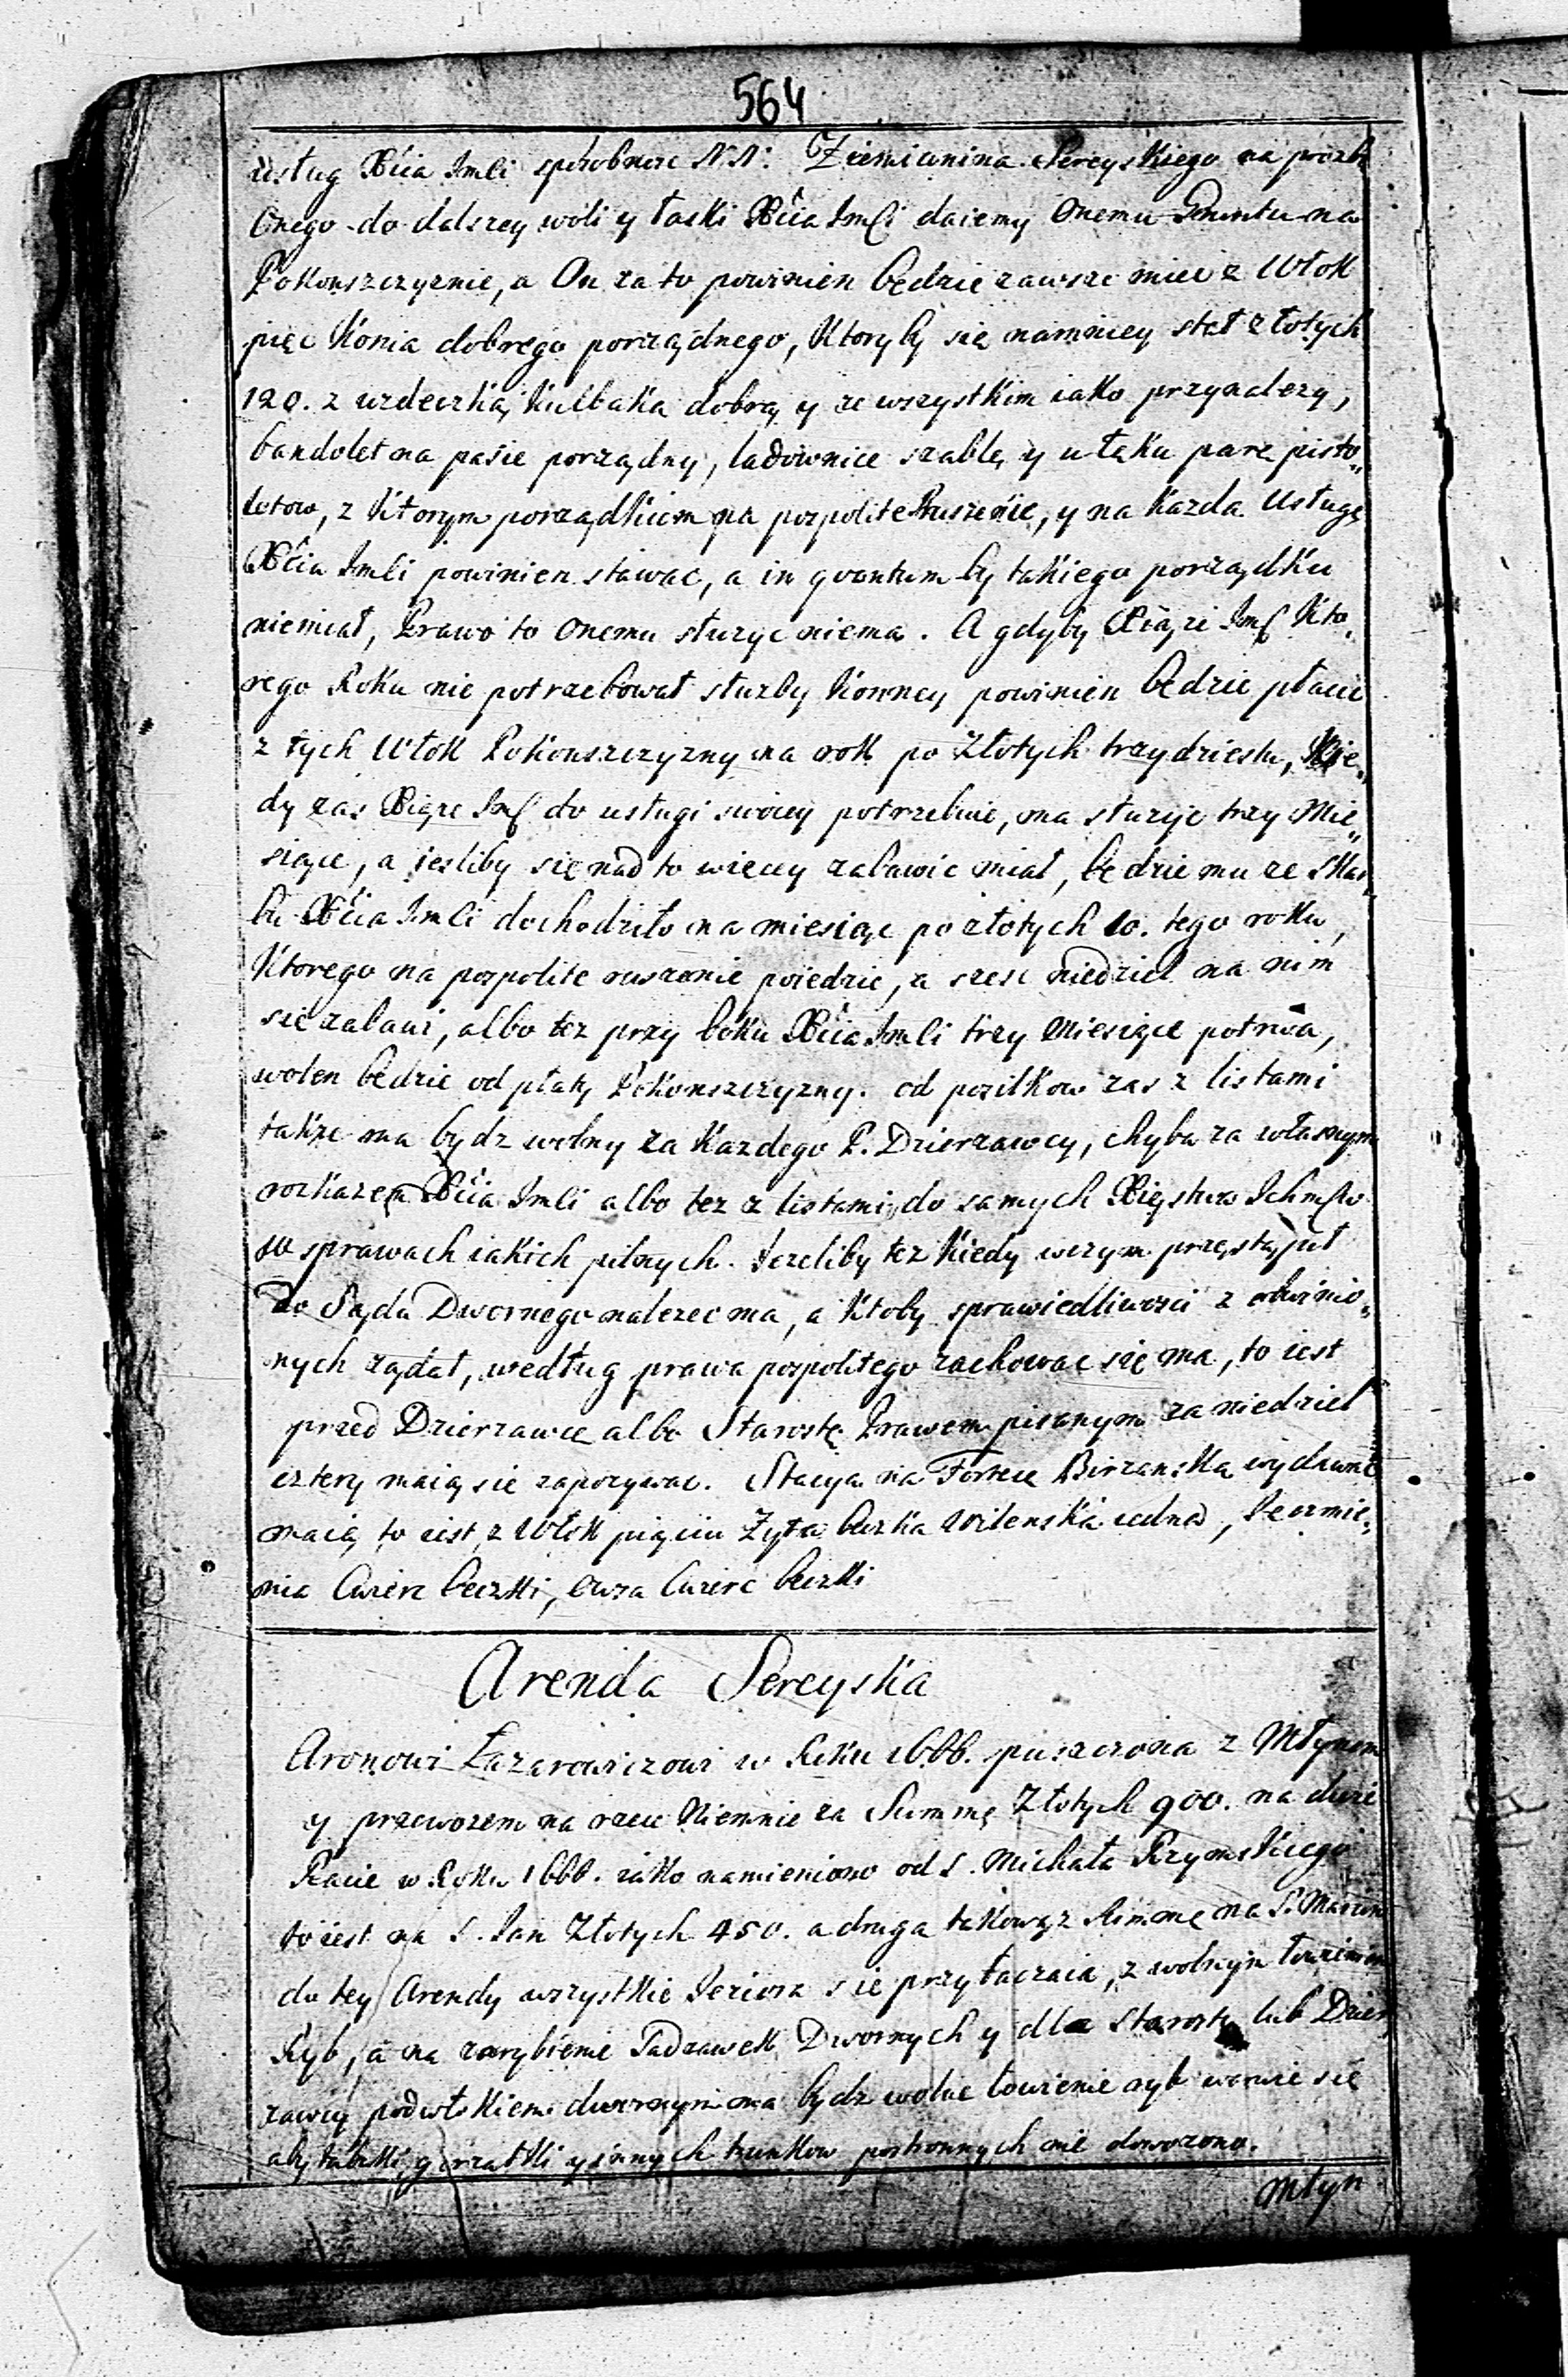 564
usług Xcia Jmći sposobnośc N.N. Ziemianina Sereyskiego na prozbę
Onego do dalszey woli y łaski Xcia Jmći daiemy Onemu Gruntu na
Pokonszczyznie, a On za to powinien będzie zawsze miec z Włok
pięc Konia dobrego porządnego, Ktoryby się namniey stał złotych
120. z uzdeczką, Kulbaką dobrą y ze wszystkim iako przynalezy,
bandolet na pasie porządny, ladownice szablę, y u łęku parę pisto„
letow, z Ktorym porządkiem na pospolite Ruszenie, y na Kazda Usługę
Xcia Jmći powinien stawac, a in quantum by takiego porządku
niemiał, Prawo to Onemu słuzyc niema. A gdyby Xiąze Jmć Kto„
rego Roku nie potrzebował słuzby Konney powinien będzie płacic
z tych Włok Pokonszczyzny na rok po Złotych trzydziestu, Kie„
dy zas Xiąze Jmć do usługi swoiey potrzebuie, ma słuzyc trzy Mie„
siące, a iesliby się nad to więcey zabawic miał, będzie mu ze Skar„
bu Xcia Jmći dochodziło na miesiąc po złotych 10. tego roku,
Ktorego na pospolite ruszenie poiedzie, a szesc niedziel na nim
się zabawi, albo tez przy boku Xcia Jmći trzy Miesiące potrwa,
wolen będzie od płaty Pokonszczyzny. od posiłkow zas z listami
takze ma bydz wolny za Kazdego P. Dzierzawcy, chyba za własnym
rozkazem Xcia Jmći albo tez z listami do samych Xięstwa Ichmćw
w sprawach iakich pilnych. Jezeliby tez Kiedy w czym przestąpił
do Sądu Dwornego nalezec ma, a Ktoby sprawiedliwosci z obwinio„
nych ządał, według prawa pospolitego zachowac się ma, to iest
przed Dzierzawcę albo Starostę Prawem pisanym za niedziel
cztery maią się zapozywac. Stacya na Fortecę Birzanską wydawac
maią to iest z Włok pięciu Zyta beczka Wilenska iedna, Jęczmie„
nia Cwierc beczki, owsa Cwierc beczki
Arenda Sereyska
Aronowi Łazarowiczowi w Roku 1666. puszczona z Młynem
y przewozem na rzece Niemnie za Summę Złotych 900. na dwie
Racie w Roku 1666. iako namieniono od S. Michała Rzymskiego
to iest na S. Jan Złotych 450. a druga takowąz Summę na S. Marcin
do tey Arendy wszystkie Jeziora się przyłączaią, z wolnym łowieniem
Ryb, a na zarybienie Sadzawek Dwornych y dla Starosty lub Dzier„
zawcy podwłokiem dwornym ma bydz wolne łowienie ryb waruie się
aby tabaki, gorzałki y innych trunkow postronnych nie dowozono.
Młyn